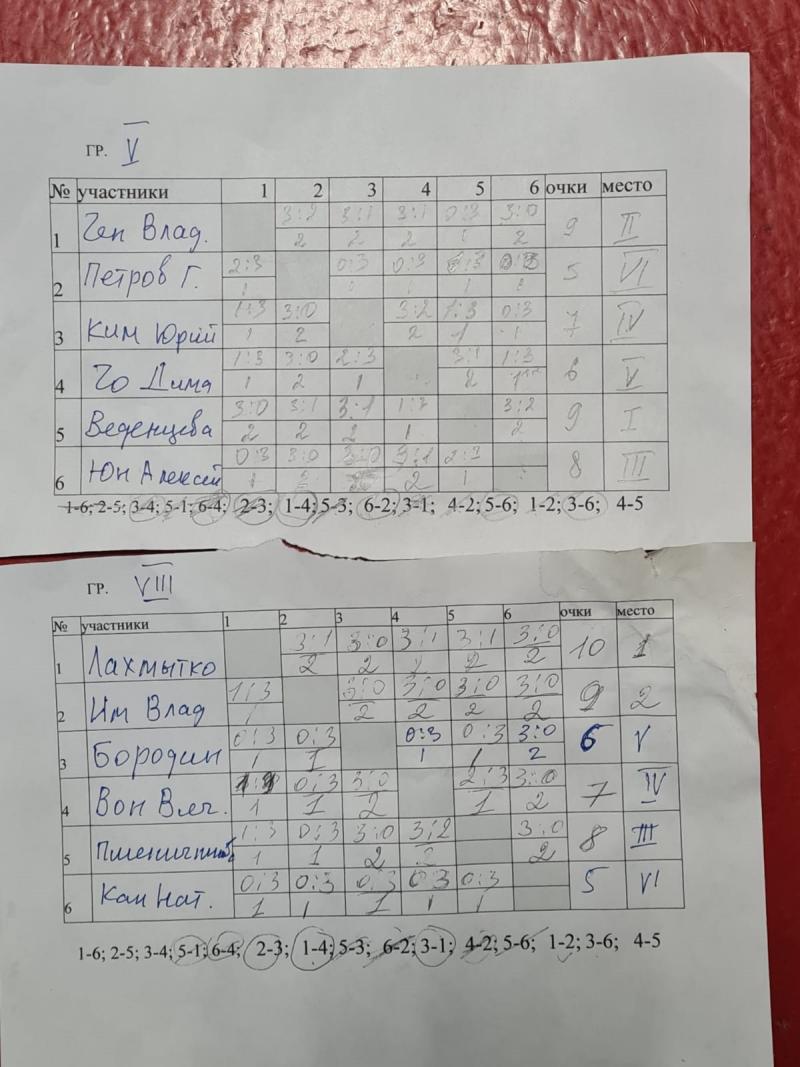 ГР. V
№ участники 1 2 3 4 5 6 очки место
3:2 3:1 3:1 0:3 3:0
1 Ген Влад. 2 2 2 1 2 9 II
2:3 0:3 0:3
2 Петров Г. 1 1 1 1 1 5 VI
1:3 3:0 3:2 1:3 0:3
3 Ким Юрий 1 2 2 1 1 7 IV
1:3 3:0 2:3 3:1 1:3
4 Чо Дима 1 2 1 2 6 V
3:0 3:1 3:1 1:3 3:2
5 Веденцева 2 2 2 1 2 9 I
0:3 3:0 3:0 3:1 2:3
6 Юн Алексей 1 2 2 2 1 8 III
1-6; 2-5; 3-4; 5-1; 6-4; 2-3; 1-4; 5-3; 6-2; 3-1; 4-2; 5-6; 1-2; 3-6; 4-5
ГР. VIII
№ участники 1 2 3 4 5 6 очки место
3:1 3:0 3:1 3:1 3:0
1 Лахмытко 2 2 2 2 2 10 1
1:3 3:0 3:0 3:0 3:0
2 Им Влад 1 2 2 2 2 9 2
0:3 0:3 0:3 0:3 3:0
3 Бородин 1 1 1 1 2 6 V
0:3 3:0 2:3 3:0
4 Вон Вяч. 1 1 2 1 2 7 IV
1:3 0:3 3:0 3:2 3:0
5 1 1 2 2 2 8 III
0:3 0:3 0:3 0:3 0:3
6 Кан Нат. 1 1 1 1 1 5 VI
1-6; 2-5; 3-4; 5-1; 6-4; 2-3; 1-4; 5-3; 6-2; 3-1; 4-2; 5-6; 1-2; 3-6; 4-5